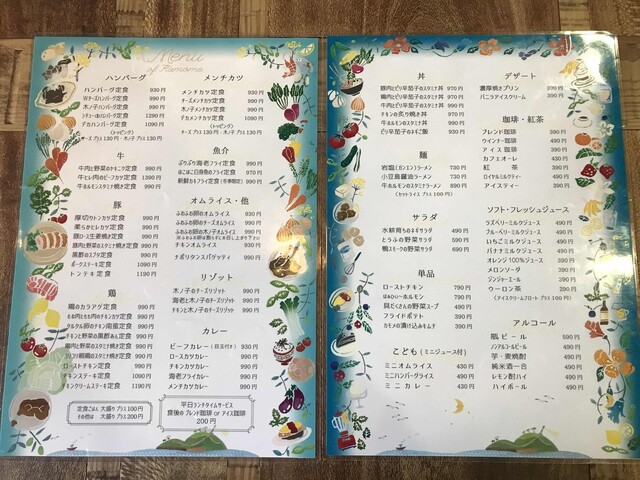 Menu
of Kamome
ハンバーグ
ハンバーグ定食 930円
Wチーズハンバーグ定食 990円
木ノ子ハンバーグ定食 990円
シチューはハンバーグ定食 990円
デカハンバーグ定食 1190円
(トッピング)
チーズ プラス130円・木ノ子 プラス130円
牛
牛肉と野菜のチキニク定食 990円
牛ヒレ肉のビーフカツ定食
牛ホルモンスタミナ焼き定食 990円
豚
厚切りトンカツ定食 990円
柔らかヒレカツ定食 990円
豚ロース生姜焼き定食 990円
豚肉と野菜のスタミナ焼き定食 990円
黒酢のスブタ定食 990円
ポークステーキ定食
トンテキ定食 1190円
鶏
鶏のカラアゲ定食 990円
タルタル鶏のチキン南蛮定食 990円
チキンと野菜の黒酢あん定食 990円
鶏肉と野菜のスタミナ焼き定食 990円
ローストチキン定食 990円
チキンステーキ定食
チキンクリームステーキ定食
定食ごはん 大盛り プラス100円
その他は 大盛り プラス200円
メンチカツ
メンチカツ定食 930円
チーズメンチカツ定食 990円
木ノ子メンチカツ定食 990円
デカメンチカツ定食 1190円
(トッピング)
チーズ プラス130円・木ノ子 プラス130円
魚介
ぷりぷり海老フライ定食 990円
ほこほこ白身魚のフライ定食 990円
新鮮カキフライ定食(冬季限定) 990円
オムライス・他
ふわふわ卵のオムライス 930円
ふわふわ卵のチーズオムライス 990円
ふわふわ卵の木ノ子オムライス 990円
チキンオムライス 930円
ナポリタンスパゲッティ 930円
リゾット
木ノ子のチーズリゾット 990円
海老と木ノ子のチーズリゾット 990円
チキンと木ノ子のチーズリゾット 990円
カレー
ビーフカレー(目玉付き) 930円
ロースカツカレー 990円
チキンカツカレー 990円
海老フライカレー 990円
メンチカツカレー 990円
平日ランチタイムサービス
食後のブレンド珈琲 or アイス珈琲
200円
丼
豚肉とピリ辛茄子のスタミナ丼 970円
鶏肉とピリ辛茄子のスタミナ丼 970円
牛肉とピリ辛茄子のスタミナ丼 970円
チキンの炙り焼き丼 970円
牛ホルモンのスタミナ丼 970円
ピリ辛茄子のねぎご飯 930円
麺
岩塩(ガンエン)ラーメン 730円
小豆島醤油ラーメン 730円
牛ホルモンのスタミナラーメン 890円
(セットライス プラス160円)
サラダ
水耕育ちのネギサラダ 490円
とうふの野菜サラダ 590円
鴨スモークの野菜サラダ 690円
単品
ローストチキン 790円
ほめろぃ〜ホルモン 790円
具だくさんの野菜スープ 490円
フライドポテト 590円
カモメの漬け込みキムチ 390円
こども(ミニジュース付)
ミニオムライス 430円
ミニハンバーグライス 430円
ミニカレー 430円
デザート
濃厚焼きプリン 390円
バニラアイスクリーム 390円
珈琲・紅茶
ブレンド珈琲 390円
ウインナー珈琲 490円
アイス珈琲 490円
カフェオーレ 490円
紅茶 390円
ロイヤルミルクティー 490円
アイスティー 490円
ソフト・フレッシュジュース
ラズベリーミルクジュース 490円
ブルーベリーミルクジュース 490円
いちごミルクジュース 490円
バナナミルクジュース 490円
オレンジ100%ジュース 490円
メロンソーダ 390円
ジンジャーエール 390円
ウーロン茶 390円
(アイスクリームフロート プラス160円)
アルコール
瓶ビール 590円
ノンアルコールビール 490円
芋・麦焼酎 490円
純米酒一合 490円
レモン酎ハイ 490円
ハイボール 490円